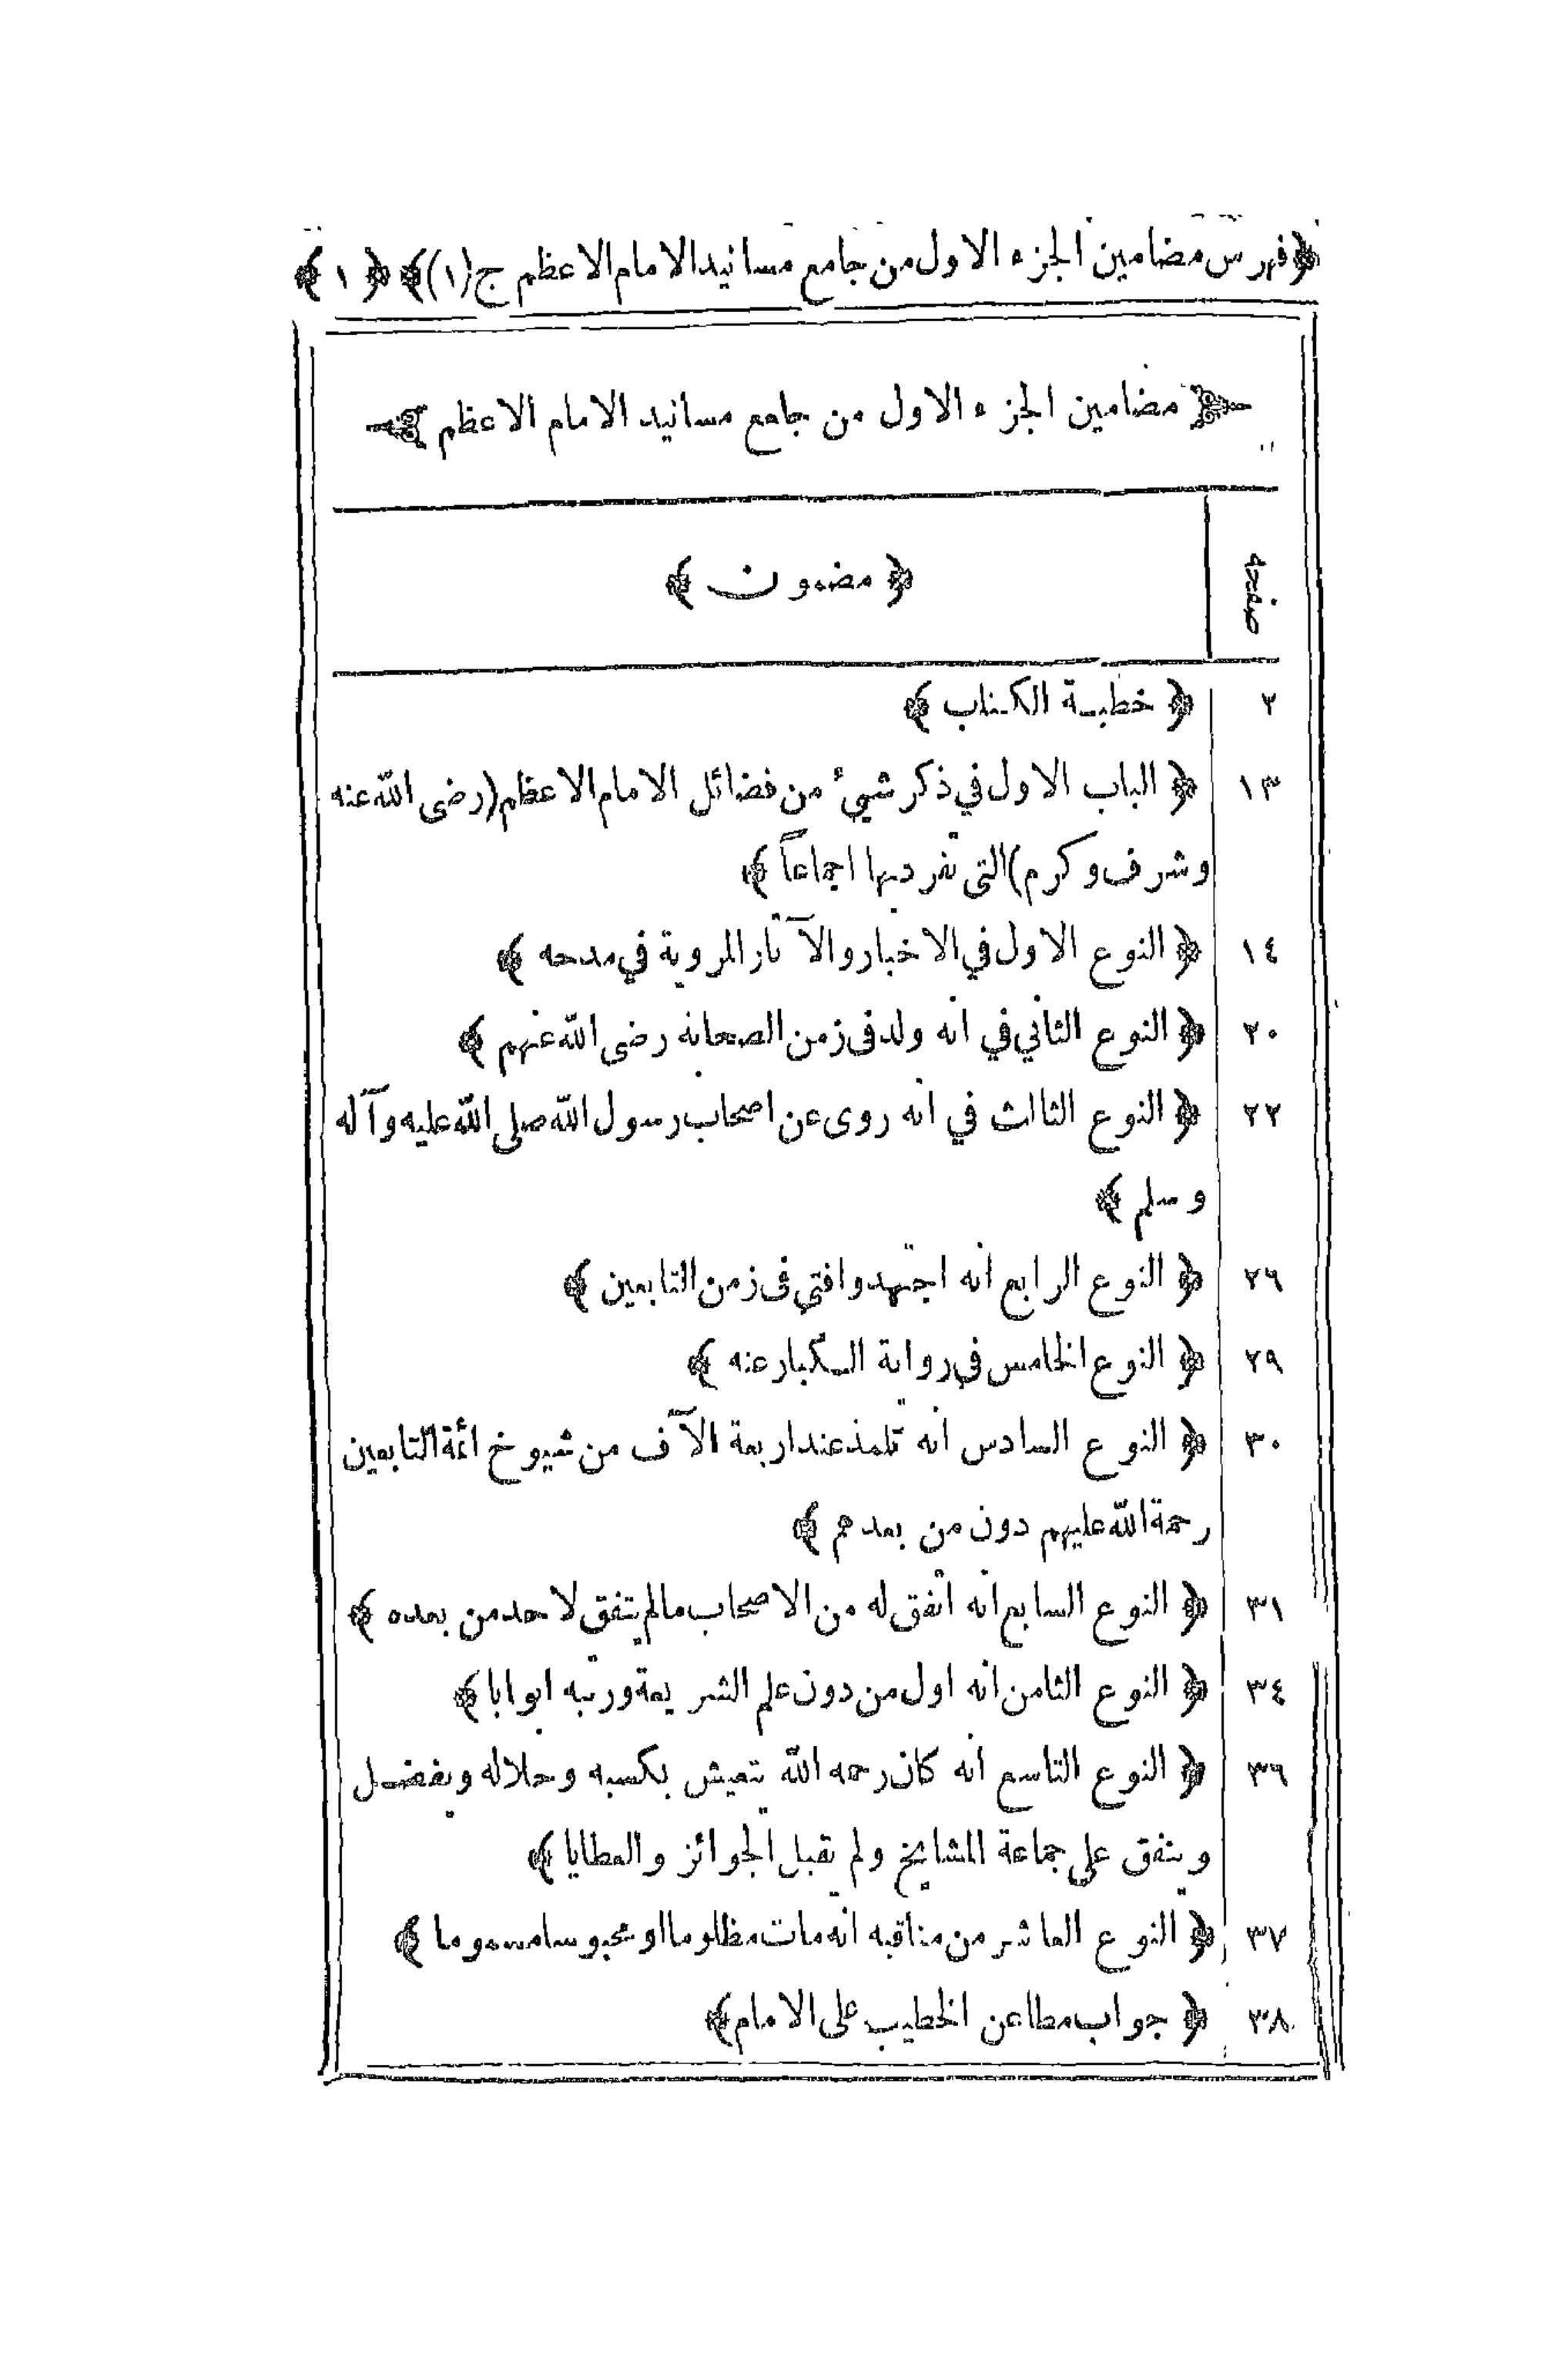 ﴿فهرس مضامين الجزء الاول من جامع مسانيد الامام الاعظم ج(١)﴾ ﴿١﴾
﴿مضامين الجزء الاول من جامع مسانيد الامام الاعظم﴾
صفحه ﴿مضمون﴾
٢ ﴿خطبة الكتاب﴾
١٣ ﴿الباب الاول في ذكر شيئ من فضائل الامام الاعظم(رضى الله عنه
وشرف وكرم)التى تفرد بها اجماعاً﴾
١٤ ﴿النوع الاول في الاخبار والآثار المروية في مدحه﴾
٢٠ ﴿النوع الثاني في انه ولد فى زمن الصحابة رضى الله عنهم﴾
٢٢ ﴿النوع الثالث في انه روى عن اصحاب رسول الله صلى الله عليه وآله
وسلم﴾
٢٦ ﴿النوع الرابع انه اجتهد وافتي فى زمن التابعين﴾
٢٩ ﴿النوع الخامس في رواية الكبار عنه﴾
٣٠ ﴿النوع السادس انه تلمذ عند اربعة الآف من شيوخ ائمة التابعين
رحمة الله عليهم دون من بعدهم﴾
٣١ ﴿النوع السابع انه اتفق له من الاصحاب مالم يتفق لاحد من بعده﴾
٣٤ ﴿النوع الثامن انه اول من دون علم الشريعة ورتبه ابوابا﴾
٣٦ ﴿النوع التاسع انه كان رحمه الله يتعيش بكسبه وحلاله ويفضل
وينفق على جماعة المشايخ ولم يقبل الجوائز والعطايا﴾
٣٧ ﴿النوع العاشر من مناقبه انه مات مظلوما او محبوسا مسموما﴾
٣٨ ﴿جواب مطاعن الخطيب على الامام﴾